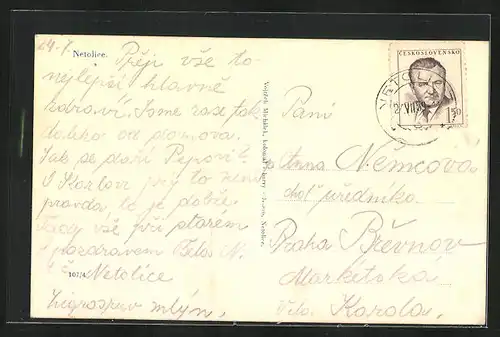 24.7. Netolice. Přeji vše to
nejlepší hlavně
zdraví. Jsme zase tak
daleko od domova.
Jak se daří Pepovi?
U Karlovi prý to není
pravda, to je dobře.
Tady vše při starém
S pozdravem Běla N.
107/4. Netolice
mlýn.
Netolice.
ČESKOSLOVENSKO
1.50
NETOLICE
Paní
Anna Němcová
choť úředníka
Praha Břevnov
Markétská